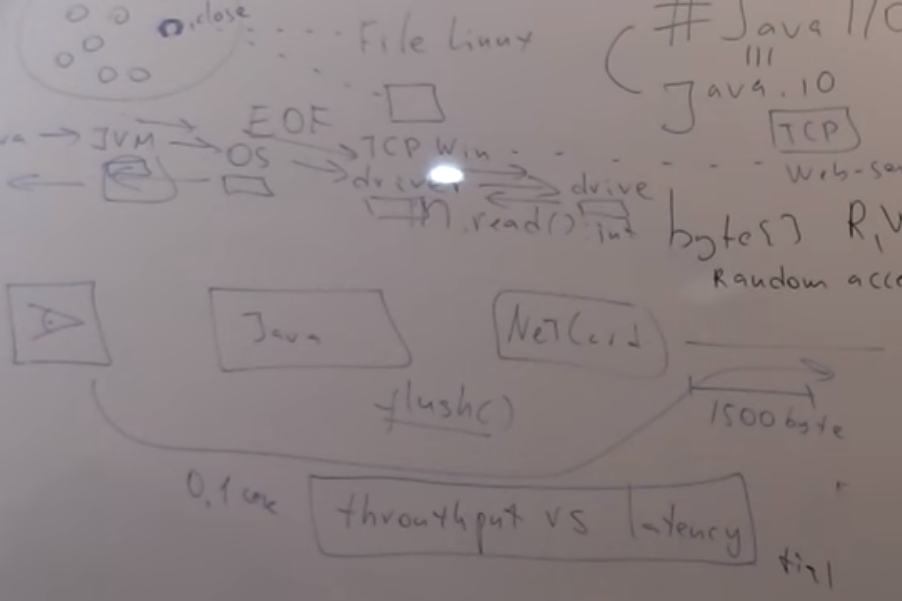 .close
File Linux
# Java I/O
Java.io
EOF
JVM
OS
TCP Win
TCP
driver
drive
Web-se
.read() int
byte[] R,W
Random acce
Java
NetCard
flush()
1500 byte
0,1 сек
throuthput vs latency